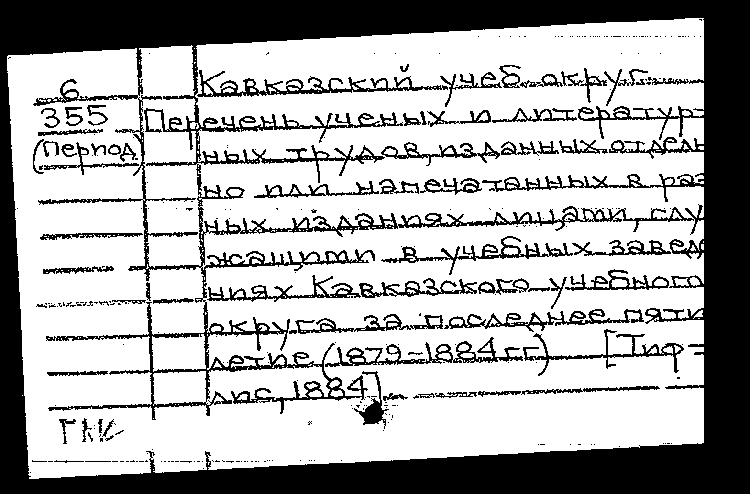 6 Кавказский учеб. округ.
355 Перечень ученых и литератур-
(период) ных трудов, изданных отдель
но или напечатанных в раз
ных изданиях лицами, слу
жащими в учебных завед
ниях Кавказского учебного
округа за последнее пяти
летие (1879-1884 гг.) [Тиф=
лис, 1884].